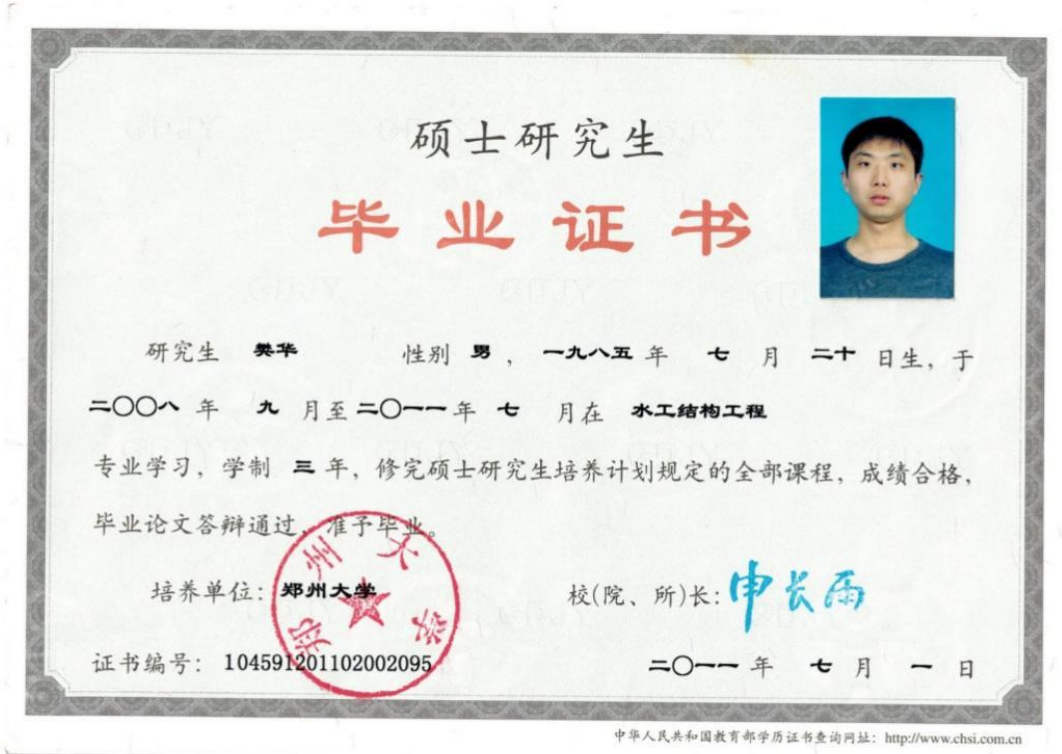 硕士研究生
毕业证书
研究生 樊华 性别 男， 一九八五 年 七 月 二十 日生，于
二〇〇八 年 九 月至 二〇一一 年 七 月在 水工结构工程
专业学习，学制 三 年，修完硕士研究生培养计划规定的全部课程，成绩合格，
毕业论文答辩通过，准予毕业。
培养单位：郑州大学
校(院、所)长：申长雨
郑州大学
证书编号：104591201102002095
二〇一一 年 七 月 一 日
中华人民共和国教育部学历证书查询网址：http://www.chsi.com.cn